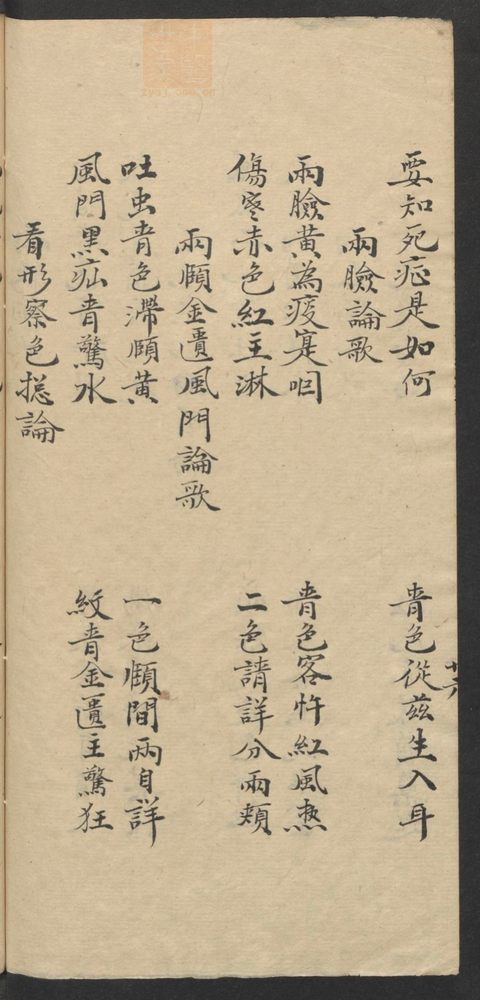 要知死症是如何　青色從兹生入耳
十六
兩臉論歌
兩臉黃為痰寔咽　青色客忤紅風熱
傷寒赤色紅主淋　二色請詳分兩頰
兩頤金匱風門論歌
吐虫青色滯頤黃　一色頤間兩自詳
風門黑疝青驚水　紋青金匱主驚狂
看形察色捴論